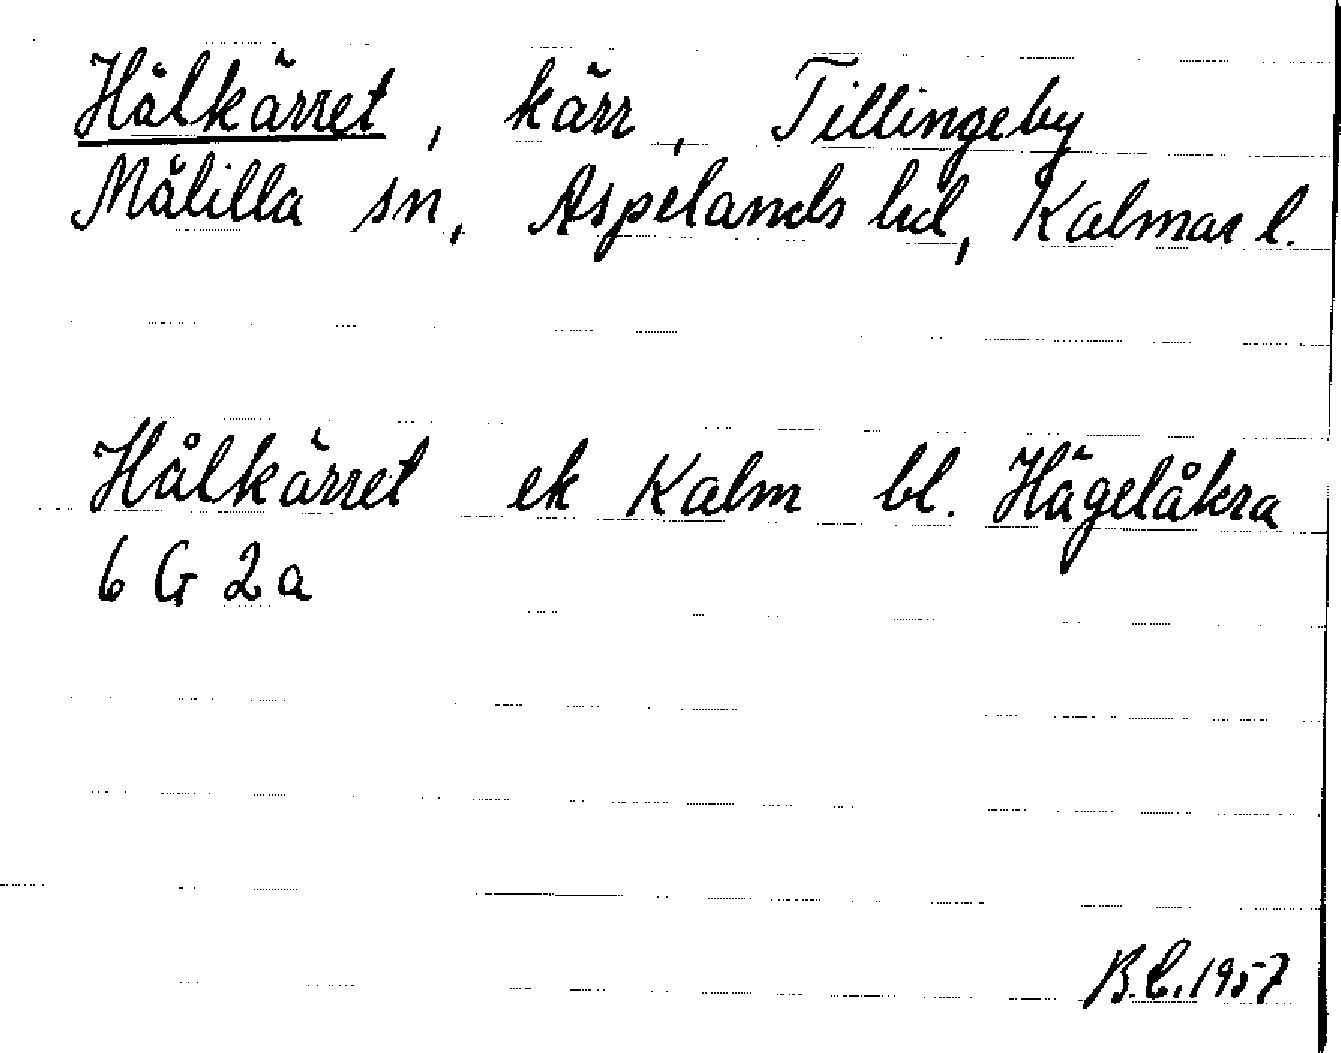 Hålkärret, kärr, Tillingeby
Målilla sn, Aspelands hd, Kalmar l.
Hålkärret ek Kalm bl. Hägelåkra
6 G 2a
B.C. 1957